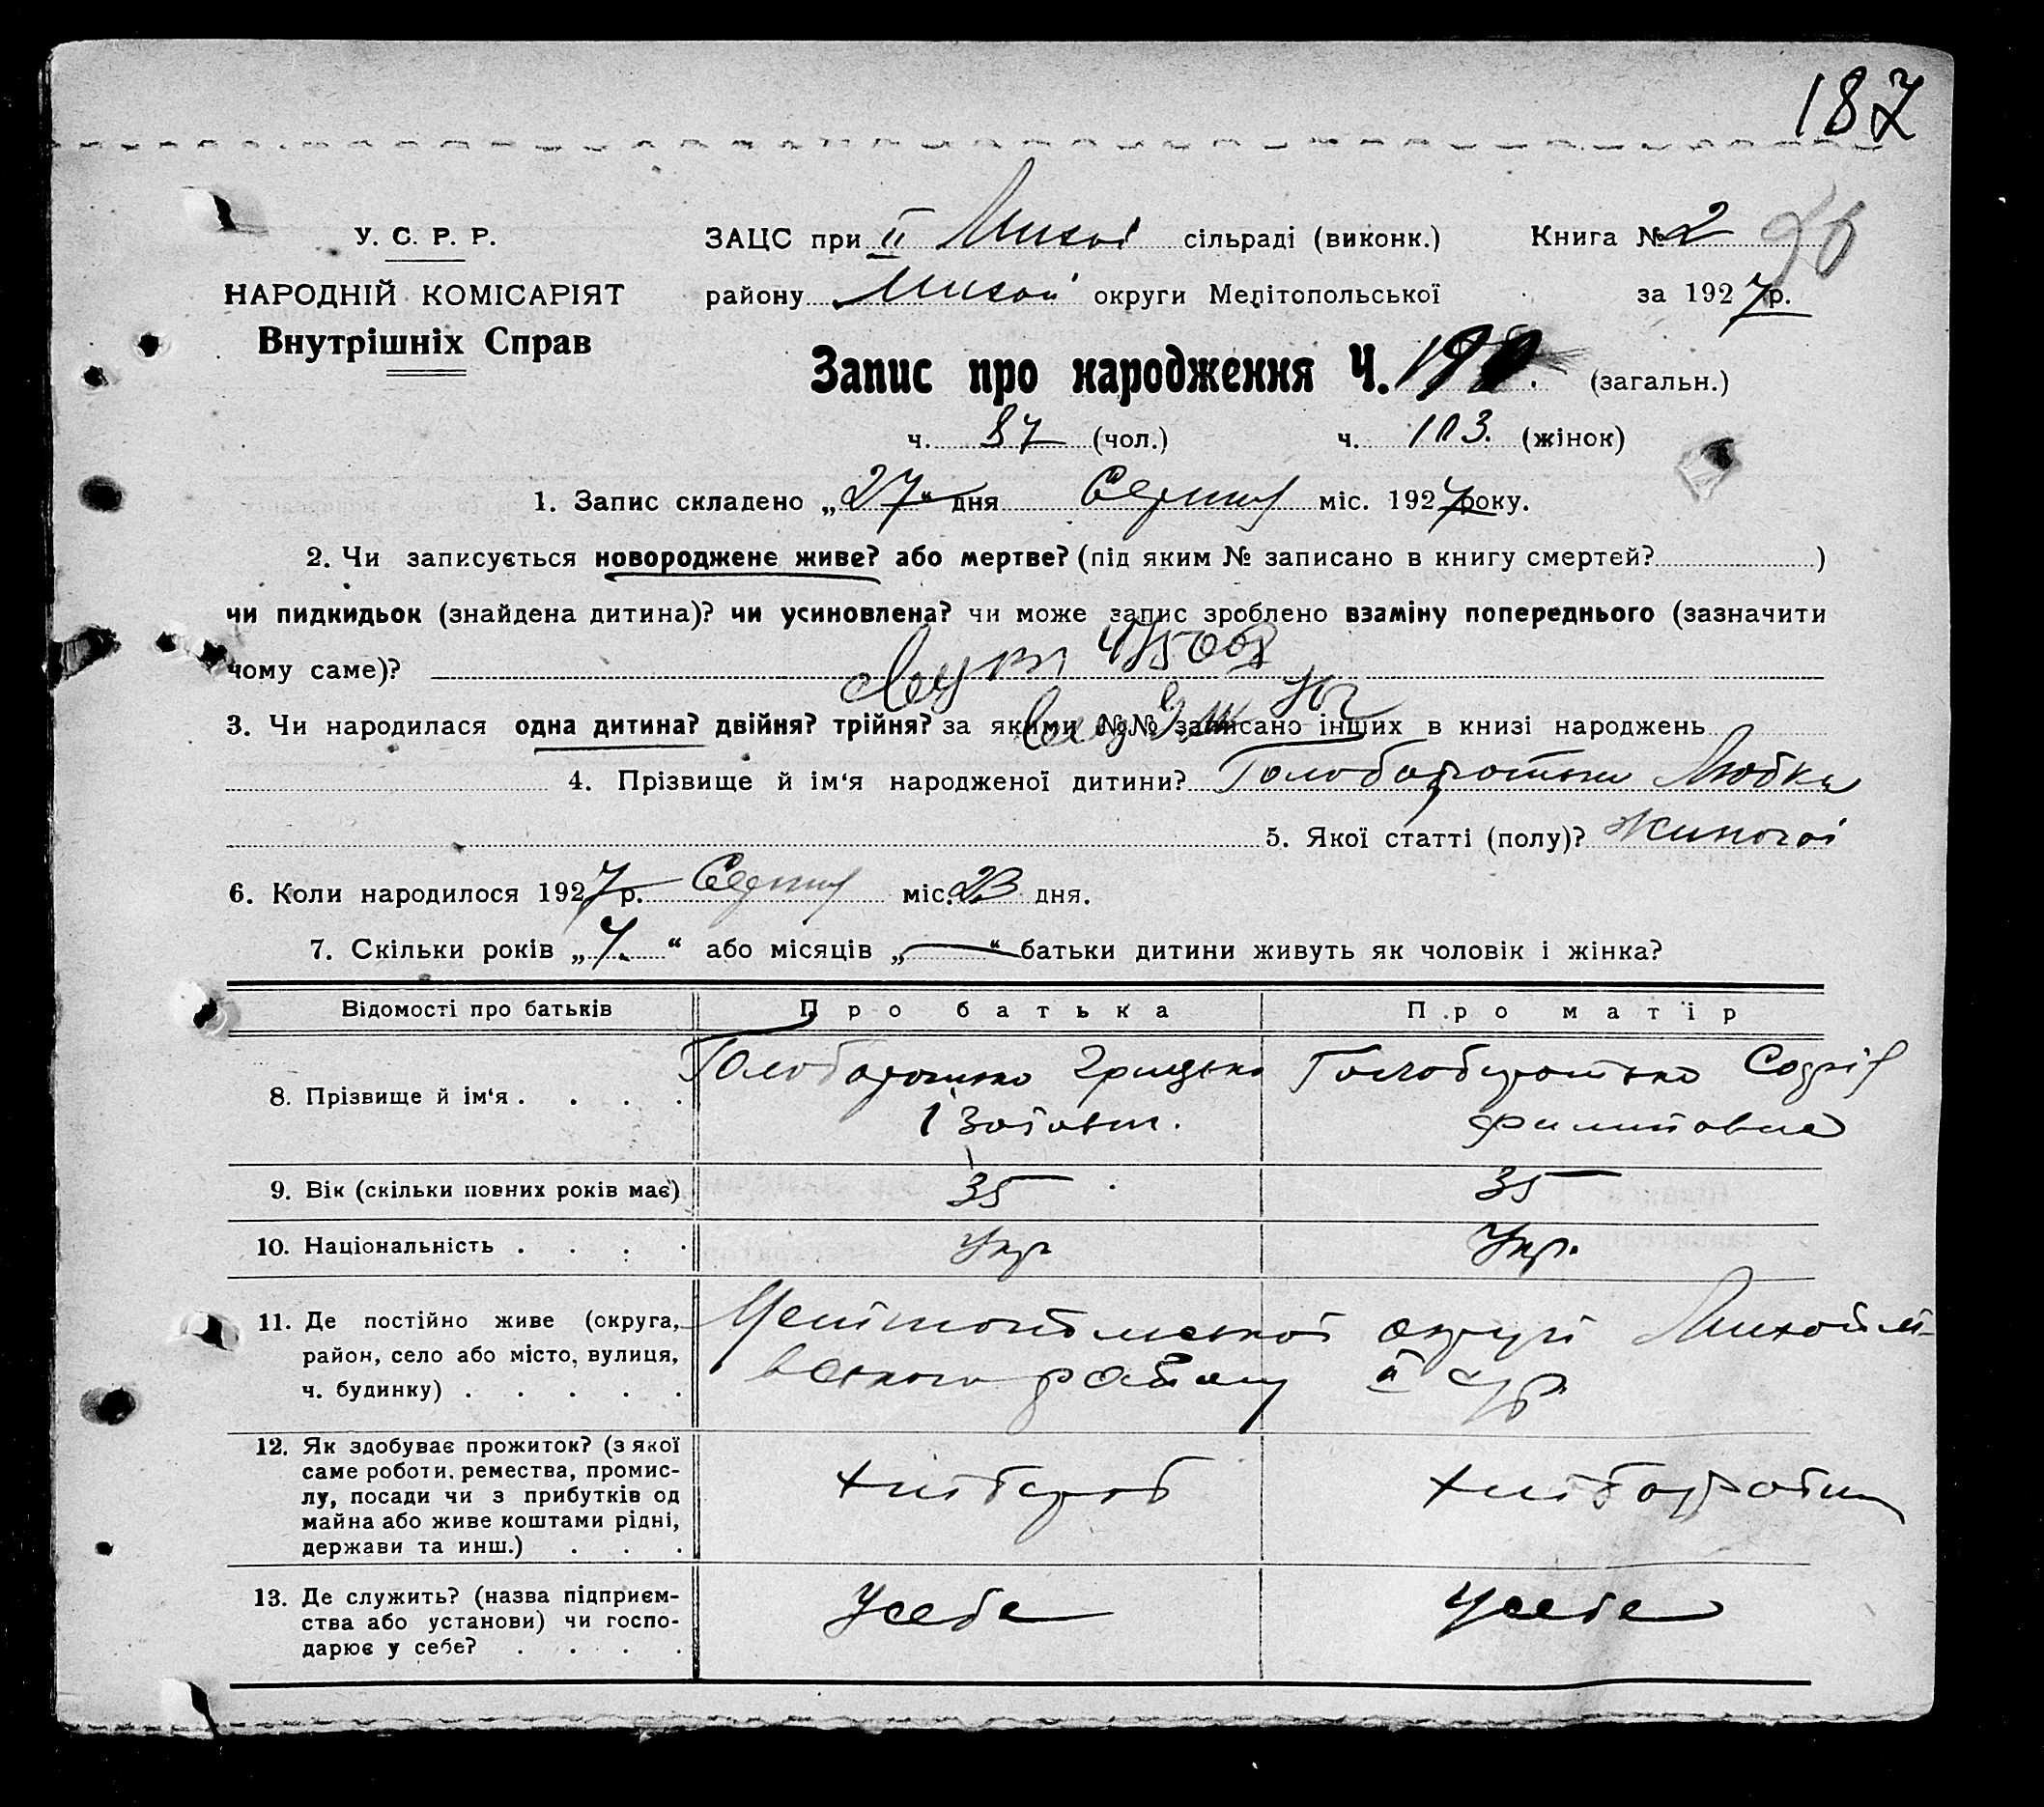 187
У. С. Р. Р.
НАРОДНІЙ КОМІСАРІЯТ
Внутрішніх Справ
ЗАЦС при II Михай сільраді (виконк.) Книга № 2
району Михай округи Мелітопольської за 1927 р.
Запис про народження Ч. 190. (загальн.)
ч. 87 (чол.) ч. 103. (жінок)
1. Запис складено „27“ дня Серпня міс. 1927 року.
2. Чи записується новороджене живе? або мертве? (під яким № записано в книгу смертей? )
чи пидкидьок (знайдена дитина)? чи усиновлена? чи може запис зроблено взаміну попереднього (зазначити
чому саме)?
3. Чи народилася одна дитина? двійня? трійня? за якими №№ записано інших в книзі народжень
4. Прізвище й ім‘я народженої дитини? Голобородько Любка
5. Якої статті (полу)? жиночої
6. Коли народилося 1927 р. Серпня міс. 23 дня.
7. Скільки років „7.“ або місяців „—“ батьки дитини живуть як чоловік і жінка?
Відомості про батьків Про батька Про матір
8. Прізвище й ім‘я . . . . Голобородько Грицько Голобородько Софія
Филиповна
9. Вік (скільки повних років має) 35 35
10. Національність . . . . Укр Укр.
11. Де постійно живе (округа, Мелітопольської округи Михайлі-
район, село або місто, вулиця, вського району II
ч. будинку) . . . . .
12. Як здобуває прожиток? (з якої
саме роботи, ремества, промис-
лу, посади чи з прибутків од хлібороб
майна або живе коштами рідні,
держави та инш.) . . .
13. Де служить? (назва підприєм- Усебе Усебе
ства або установи) чи госпо-
дарює у себе? . . . .